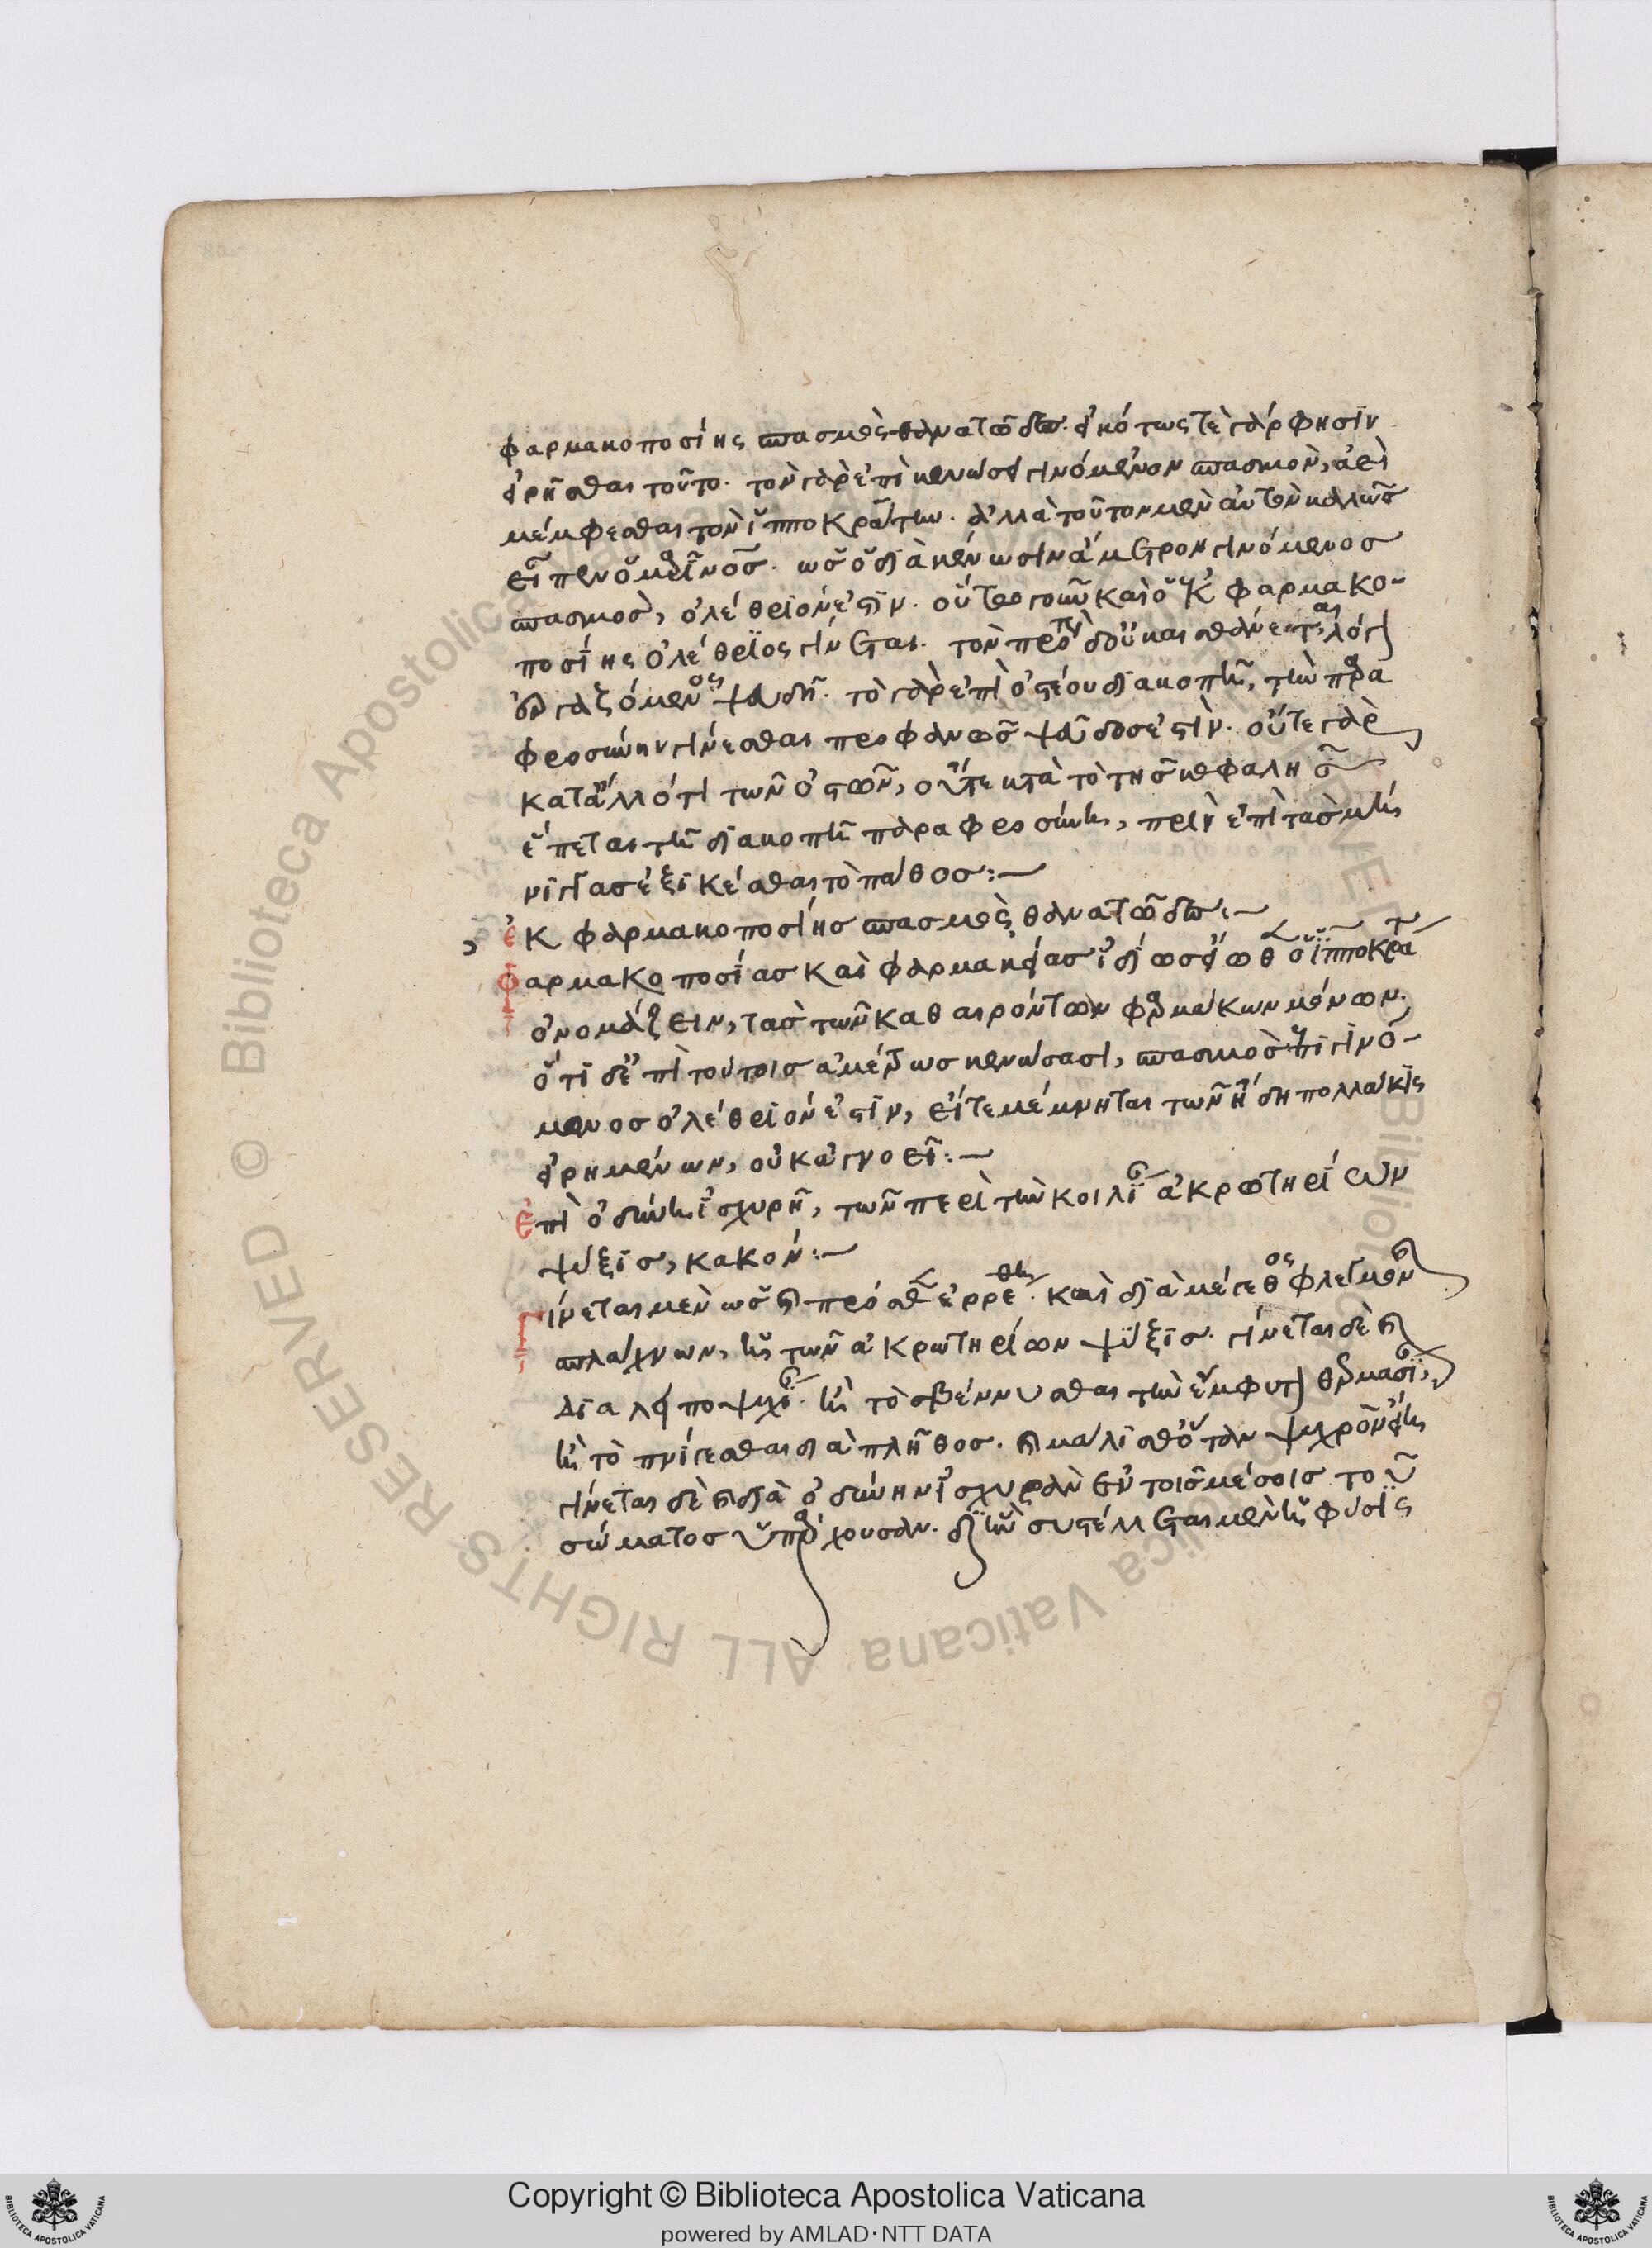 φαρμακοποσίης σπασμὸς θανατῶδες. εἰκότως τὲ γάρ φησιν
εἰρῆσθαι τοῦτο. τὸν γὰρ ἐπὶ κενώσει γινόμενον σπασμὸν, ἀεὶ
μέμφεσθαι τὸν ἱπποκράτην. ἀλλὰ τοῦτον μὲν αὐτὸν καλῶς
εἶπεν ὁ
ὡς ὁ διὰ κένωσιν ἄμετρον γινόμενος
σπασμὸς, ὀλέθριόν ἐστιν. οὕτω γοῦν καὶ ὁ ἐκ φαρμακο-
ποσίης ὀλέθριος γίνεται. τὸν
λόγῳ
ἐργαζόμενος ψευδῆ. τὸ γὰρ ἐπὶ ὀστέου διακοπῇ, τὴν παρα
φροσύνην γίνεσθαι προφανῶς ψεῦδος ἐστὶν. οὔτε γὰρ
κατ' ἄλλό τι τῶν ὀστῶν, οὔτε κατὰ τὸ τῆς κεφαλῆς
ἕπεται τῇ διακοπῇ παραφροσύνη, πρὶν ἐπὶ τὰς μή
νιγγας ἐξικέσθαι τὸ πάθος:
ἐκ φαρμακοποσίης σπασμὸς θανατῶδες:
Φαρμακοποσίας καὶ φαρμακείας ἰδίως εἴωθεν ὁ ἱπποκράτης
ὀνομάζειν, τὰς τῶν καθαιρόντων φαρμάκων μόνων.
ὅτι δ' ἐπὶ τούτοις ἀμέτρως κενώσασι, σπασμὸς ἐπιγινό-
μενος ὀλέθριόν ἐστιν, εἴ τε μέμνηται τῶν ἤδη πολλάκις
εἰρημένων, οὐκ ἀγνοεῖ:
Ἐπὶ ὀδύνῃ ἰσχυρῇ, τῶν περὶ τὴν κοιλίαν ἀκρωτηρίων
ψύξις, κακόν:
Γίνεται μὲν ὡς καὶ πρόσθεν ἐρρέθη. καὶ διὰ μέγεθος φλεγμονῆς
σπλάγχνων, ἡ τῶν ἀκρωτηρίων ψύξις. γίνεται δὲ καὶ
διὰ λειποψυχίαν. ἢ τὸ σβέννυσθαι τὴν ἔμφυτον θερμασίαν,
ἢ τὸ πνίγεσθαι διὰ πλῆθος. καὶ μάλισθ' ὅταν ψυχρὸν εἴη
γίνεται δὲ καὶ διὰ ὀδύνην ἰσχυρὰν ἐν τοῖς μέσοις τοῦ
σώματος ὑπάρχουσαν. δι' ἣν συστέλλεται μὲν ἡ φύσις